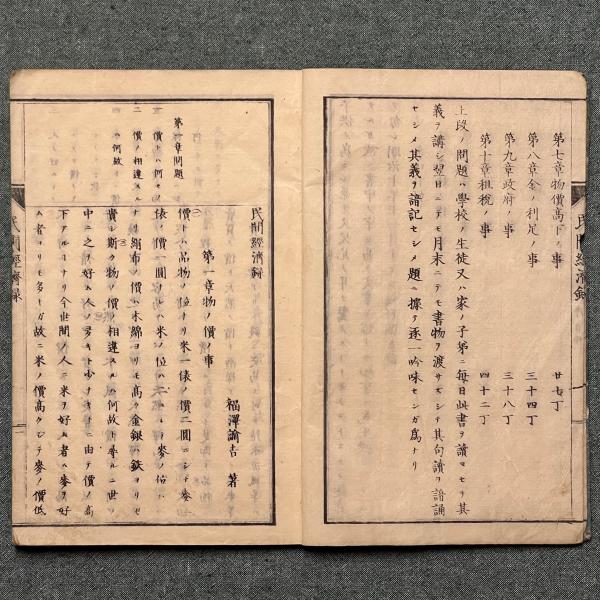 第七章物價高下ノ事 廿七丁
第八章金ノ利足ノ事 三十四丁
第九章政府ノ事 三十八丁
第十章租税ノ事 四十二丁
上段ノ問題ハ學校ノ生徒又ハ家ノ子弟ニ毎日此書ヲ讀マセテ其
義ヲ講シ翌日ニテモ月末ニテモ書物ヲ渡サズシテ其句讀ヲ諳誦
セシメ其義ヲ諳記セシメ題ニ據テ逐一吟味センガ為ナリ
民間經濟録
民間經濟録
福澤諭吉 著
第一章物ノ價ノ事
第一章問題
一 價トハ何ゾ
二 價ノ相違スル
ハ何故ゾ
(一)價トハ品物ノ位ナリ米一俵ノ價二圓ニシテ麥一
俵ノ價一圓ナレバ米ノ位ハ二ニシテ麥ノ位ハ一
ナリ絹布ノ價ハ木綿ヨリモ高ク金銀ハ鉄ヨリモ
貴シ(二)斯ク物ノ價ノ相違スルハ何故ト尋ルニ世ノ
中ニ之ヲ好ム人ノ多キト少ナキトニ由テ價ノ高
下アルコナリ今世間ノ人ニ米ヲ好ム者ハ麥ヲ好
ム者ヨリモ多シガ故ニ米ノ價高クシテ麥ノ價低
民間經濟録
一